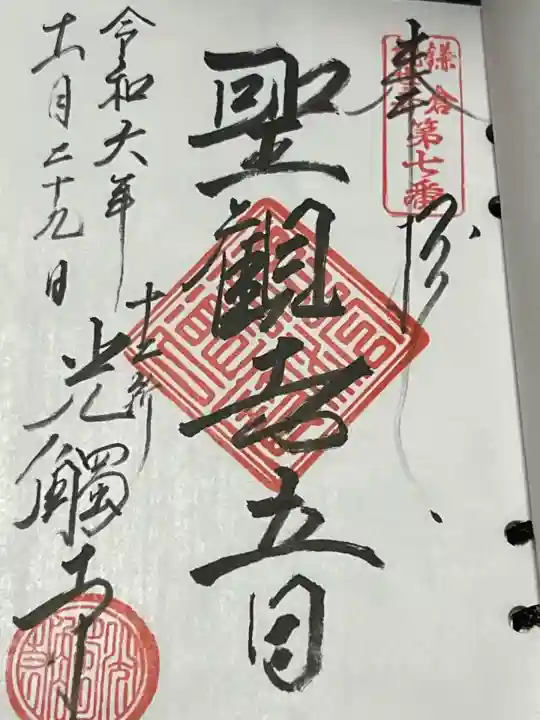 鎌倉
第七番
奉拝
聖觀世音
令和六年
十一月二十九日
十二所
光觸寺